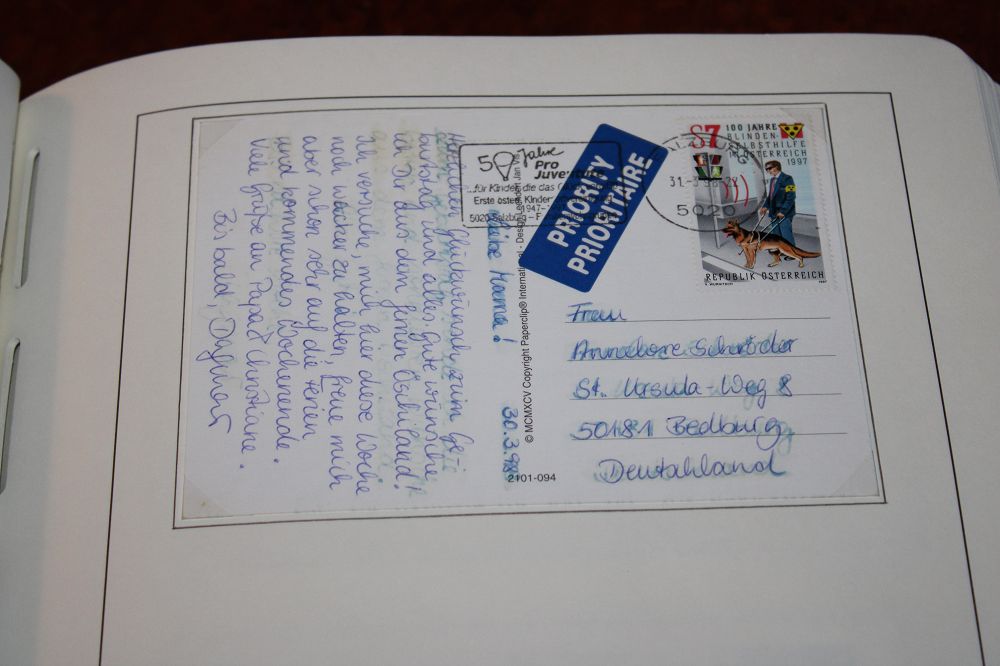 30.3.98
Liebe Mama!
Herzlichen Glückwunsch zum Geb
urtstag und alles Gute wünsche
ich Dir aus dem fernen Öschiland!
Ich versuche, mich hier diese Woche
noch wacker zu halten, freue mich
aber schon sehr auf die Ferien
und kommendes Wochenende.
Viele Grüße an Papa & Christiane.
Bis bald, Dagmar
© MCMXCV Copyright Paperclip® International - Design
2101-094
50 Jahre
Pro
Juventute
...für Kinder, die das
Erste österr. Kinder-
1947-
5020 Salzburg - F
PRIORITY
PRIORITAIRE
31-3
5020
S7
100 JAHRE
BLINDEN-
SELBSTHILFE
IN ÖSTERREICH
1997
REPUBLIK ÖSTERREICH
1997
Frau
Annelore Schröder
St. Ursula-Weg 8
50181 Bedburg
Deutschland